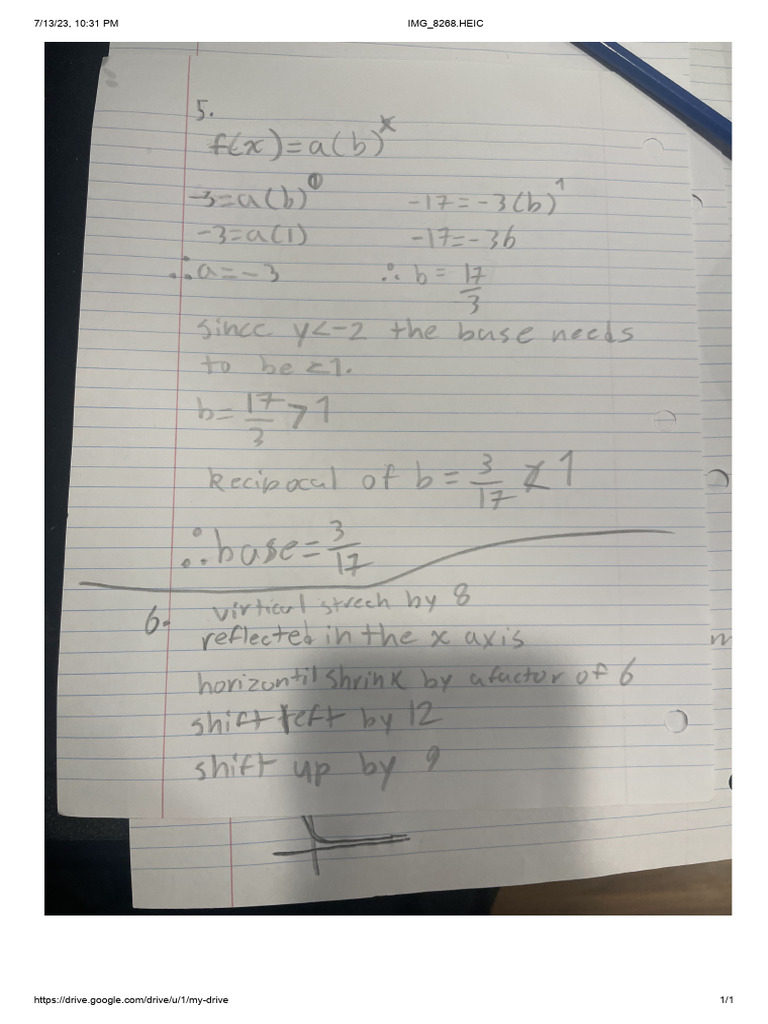 7/13/23, 10:31 PM IMG_8268.HEIC
5.
f(x)=a(b)^x
-3=a(b)^0 -17=-3(b)^1
-3=a(1) -17=-3b
∴a=-3 ∴b=17/3
since y<-2 the base needs
to be <1.
b=17/3>1
Reciprocal of b=3/17<1
∴base=3/17
6. virtical strech by 8
reflected in the x axis
horizontil shrink by a factor of 6
shift left by 12
shift up by 9
https://drive.google.com/drive/u/1/my-drive 1/1